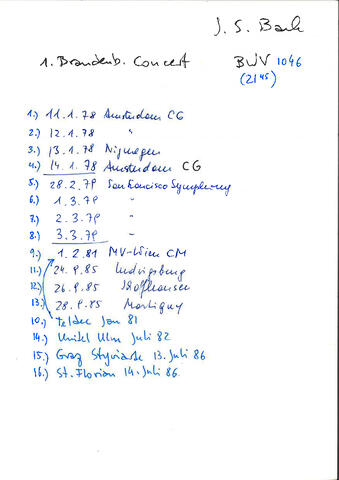 J. S. Bach
1. Brandenb. Concert BWV 1046
(2145)
1.) 11.1.78 Amsterdam CG
2.) 12.1.78 "
3.) 13.1.78 Nijmegen
4.) 14.1.78 Amsterdam CG
5.) 28.2.79 San Francisco Symphony
6.) 1.3.79 "
7.) 2.3.79 "
8.) 3.3.79 "
9.) 1.2.81 MV-Wien CM
11.) 24.9.85 Ludwigsburg
12.) 26.9.85
13.) 28.9.85 Martigny
10.) Teldec Jan 81
14.) Unitel Ulm Juli 82
15.) Graz Styriarte 13. Juli 86
16.) St. Florian 14. Juli 86